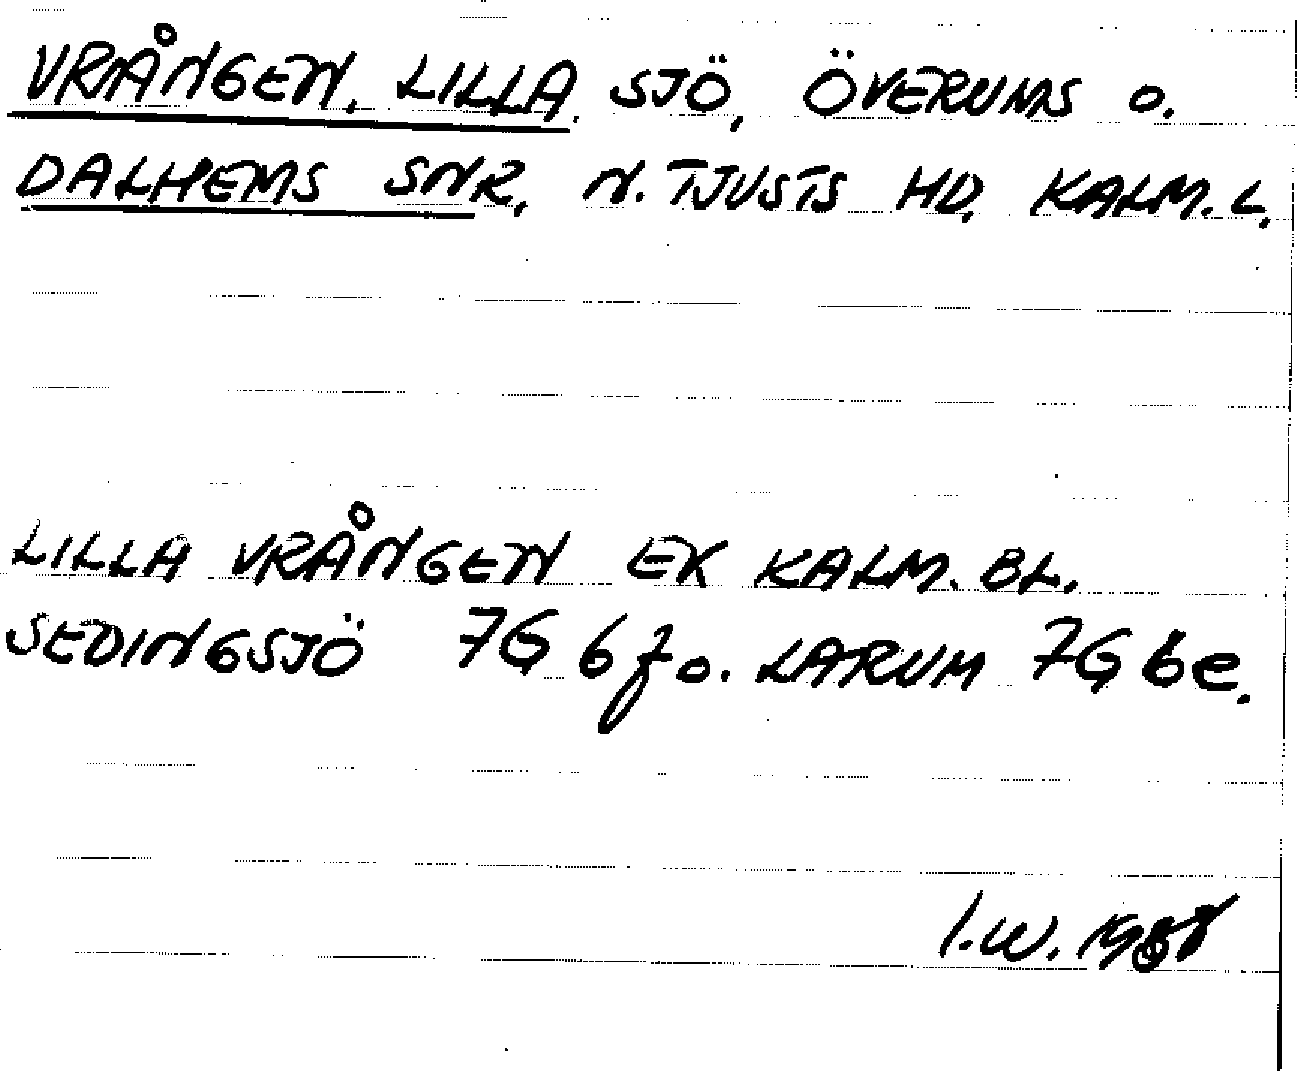 VRÅNGEN, LILLA, SJÖ, ÖVERUMS O.
DALHEMS SNR, N. TJUSTS HD, KALM. L.
LILLA VRÅNGEN EK KALM. BL.
SEDINGSJÖ 7G 6f o. LARUM 7G 6e.
I.W.